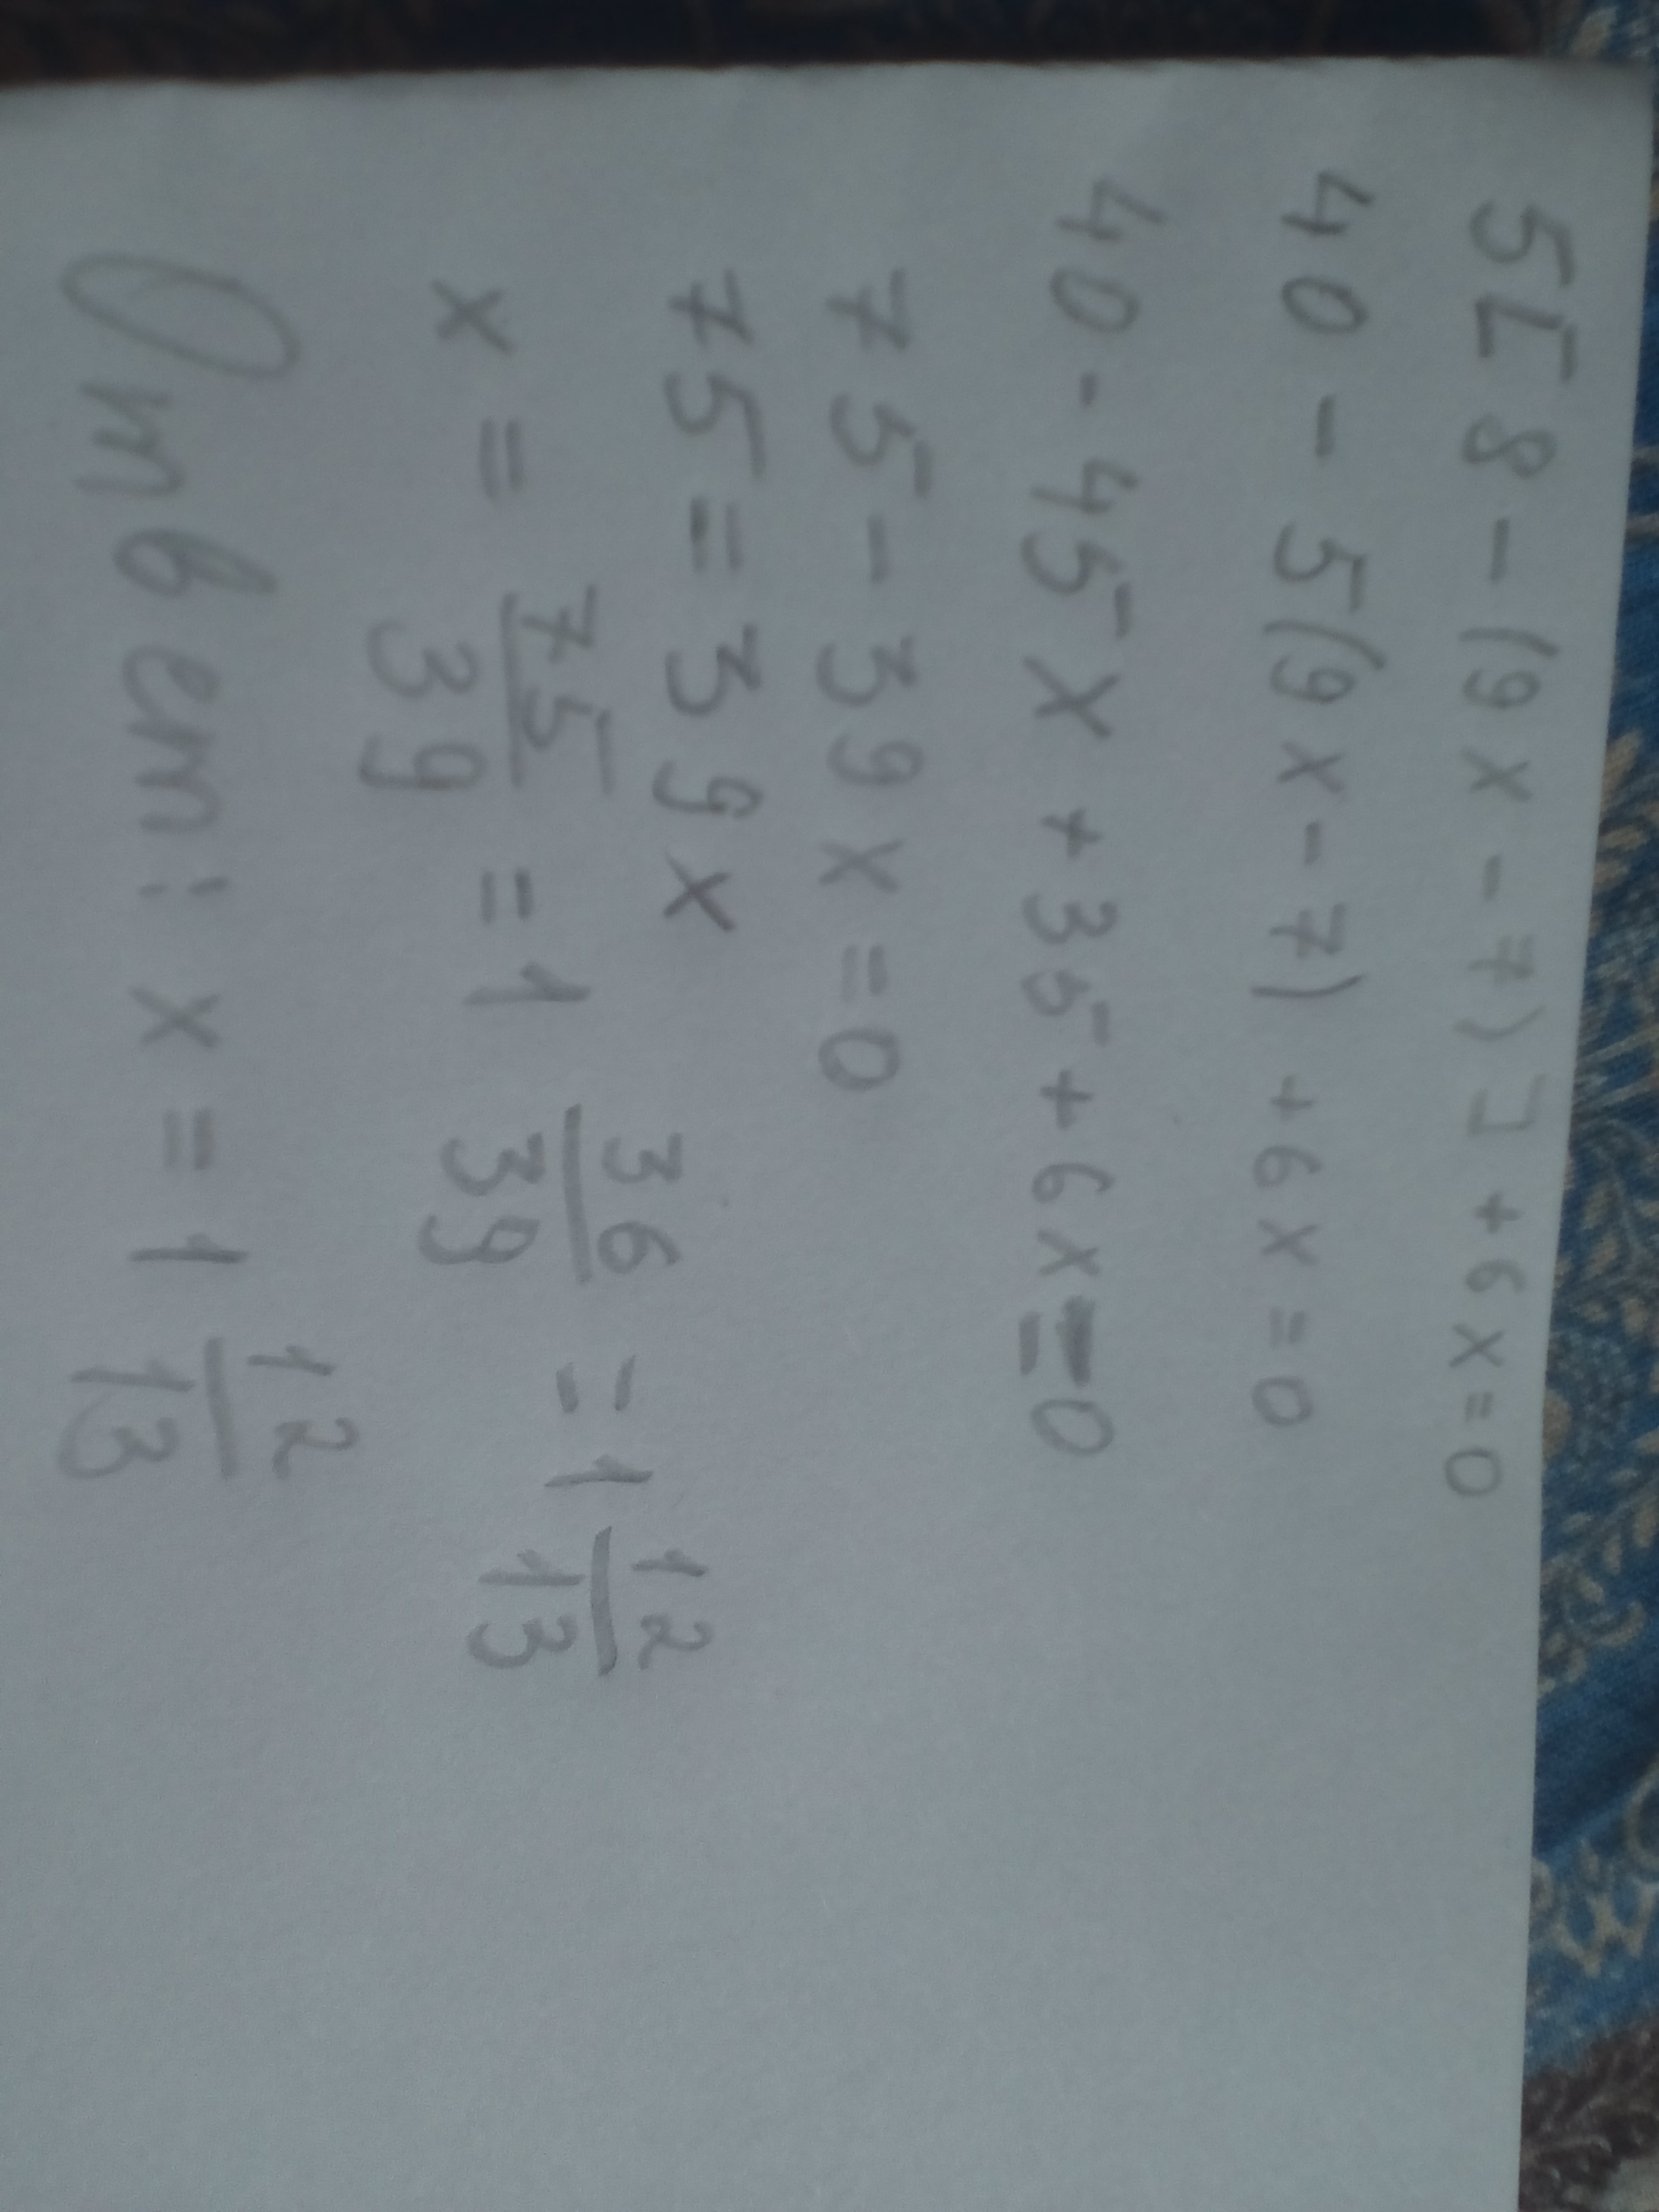 5[8-(9x-7)]+6x=0
40-5(9x-7)+6x=0
40-45x+35+6x=0
75-39x=0
75=39x
x = 75/39 = 1 36/39 = 1 12/13
Ответ: x = 1 12/13